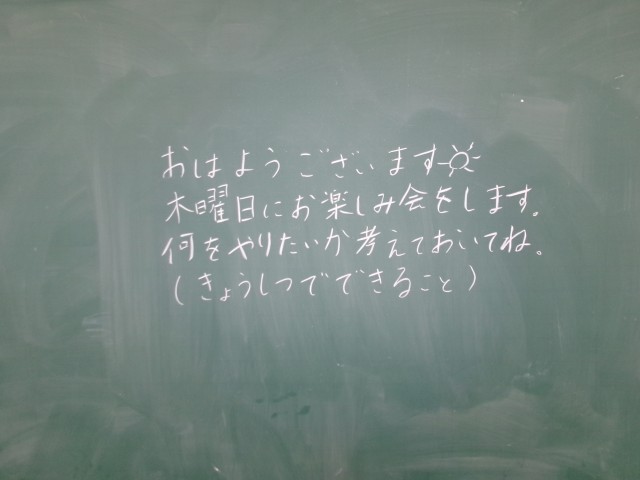 おはようございます☼
木曜日にお楽しみ会をします。
何をやりたいか考えておいてね。
(きょうしつでできること)